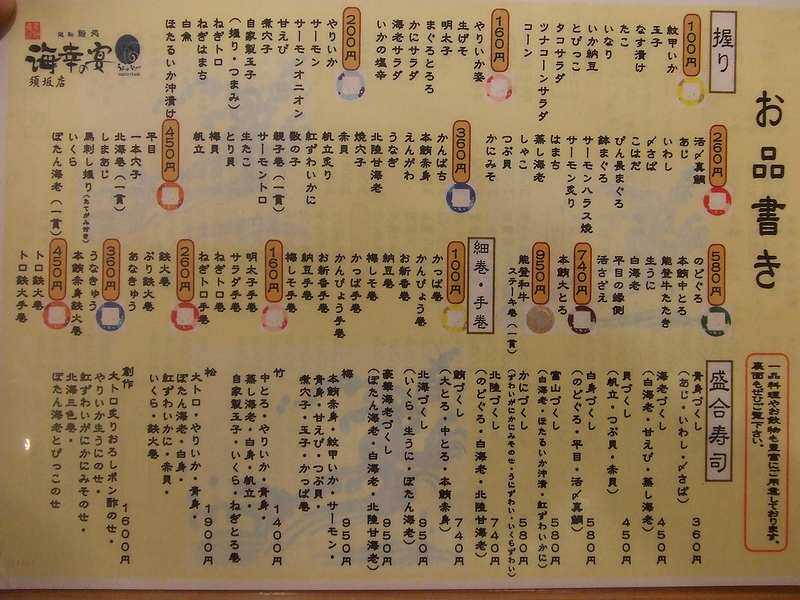 お品書き
一品料理やお飲物も豊富にご用意しております。
裏面もぜひご覧下さい。
握り
100円
紋甲いか
玉子
なす漬け
たこ
いなり
いか納豆
とびっこ
タコサラダ
ツナコーンサラダ
コーン
160円
やりいか姿
生げそ
明太子
まぐろとろろ
かにサラダ
海老サラダ
いかの塩辛
200円
やりいか
サーモン
サーモンオニオン
甘えび
煮穴子
自家製玉子
(握り・つまみ)
ねぎトロ
ねぎはまち
白魚
ほたるいか沖漬け
海幸の宴
須坂店
260円
活〆真鯛
あじ
いわし
〆さば
こはだ
びん長まぐろ
鉢まぐろ
サーモンハラス焼
サーモン炙り
はまち
蒸し海老
しゃこ
つぶ貝
かにみそ
360円
かんぱち
本鮪赤身
えんがわ
うなぎ
北陸甘海老
焼穴子
赤貝
帆立炙り
紅ずわいかに
数の子
親子巻(一貫)
サーモントロ
生たこ
とり貝
梅貝
帆立
450円
平目
一本穴子
北海巻(一貫)
しまあじ
馬刺し握り(あてがみ付き)
いくら
ぼたん海老(一貫)
580円
のどぐろ
本鮪中とろ
能登牛たたき
生うに
白海老
平目の縁側
活さざえ
740円
本鮪大とろ
950円
能登和牛
ステーキ巻(一貫)
細巻・手巻
100円
かっぱ巻
かんぴょう巻
お新香巻
納豆巻
梅しそ巻
かっぱ手巻
かんぴょう手巻
お新香手巻
納豆手巻
梅しそ手巻
160円
明太子手巻
サラダ手巻
ねぎトロ巻
ねぎトロ手巻
260円
鉄火巻
ぶり鉄火巻
あなきゅう
360円
うなきゅう
本鮪赤身鉄火巻
450円
トロ鉄火巻
トロ鉄火手巻
盛合寿司
青身づくし 360円
(あじ・いわし・〆さば)
海老づくし 450円
(白海老・甘えび・蒸し海老)
貝づくし 450円
(帆立・つぶ貝・赤貝)
白身づくし 580円
(のどぐろ・平目・活〆真鯛)
富山づくし 580円
(白海老・ほたるいか沖漬・紅ずわいかに)
かにづくし 580円
(ずわいがにかにみそのせ・うにずわい・いくらずわい)
北陸づくし 740円
(のどぐろ・白海老・北陸甘海老)
鮪づくし 740円
(大とろ・中とろ・本鮪赤身)
北海づくし 950円
(いくら・生うに・ぼたん海老)
豪華海老づくし 950円
(ぼたん海老・白海老・北陸甘海老)
梅 950円
本鮪赤身・紋甲いか・サーモン・
青身・甘えび・つぶ貝・
煮穴子・玉子・かっぱ巻
竹 1400円
中とろ・やりいか・青身・
蒸し海老・白身・帆立・
自家製玉子・いくら・ねぎとろ巻
松 1900円
大トロ・やりいか・青身・
ぼたん海老・白身・
紅ずわいかに・赤貝・
いくら・鉄火巻
創作 1600円
大トロ炙りおろしポン酢のせ・
やりいか生うにのせ・
紅ずわいがにかにみそのせ・
北海三色巻・
ぼたん海老とびっこのせ